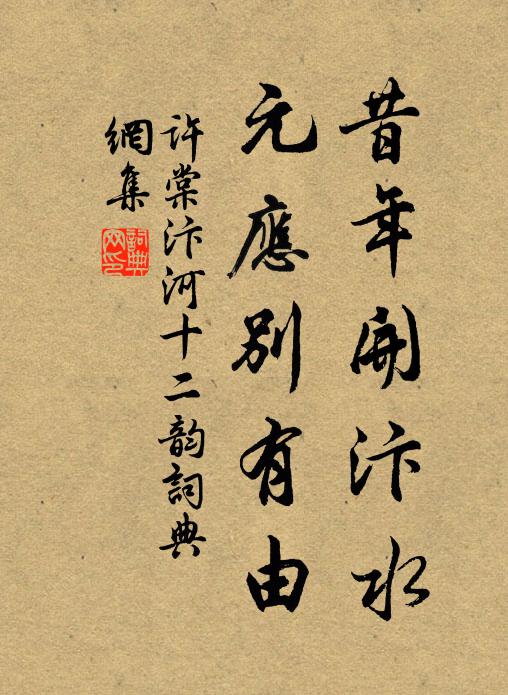 昔年開汴水
元應別有由
許棠汴河十二韵詞典
網集
詞典網印